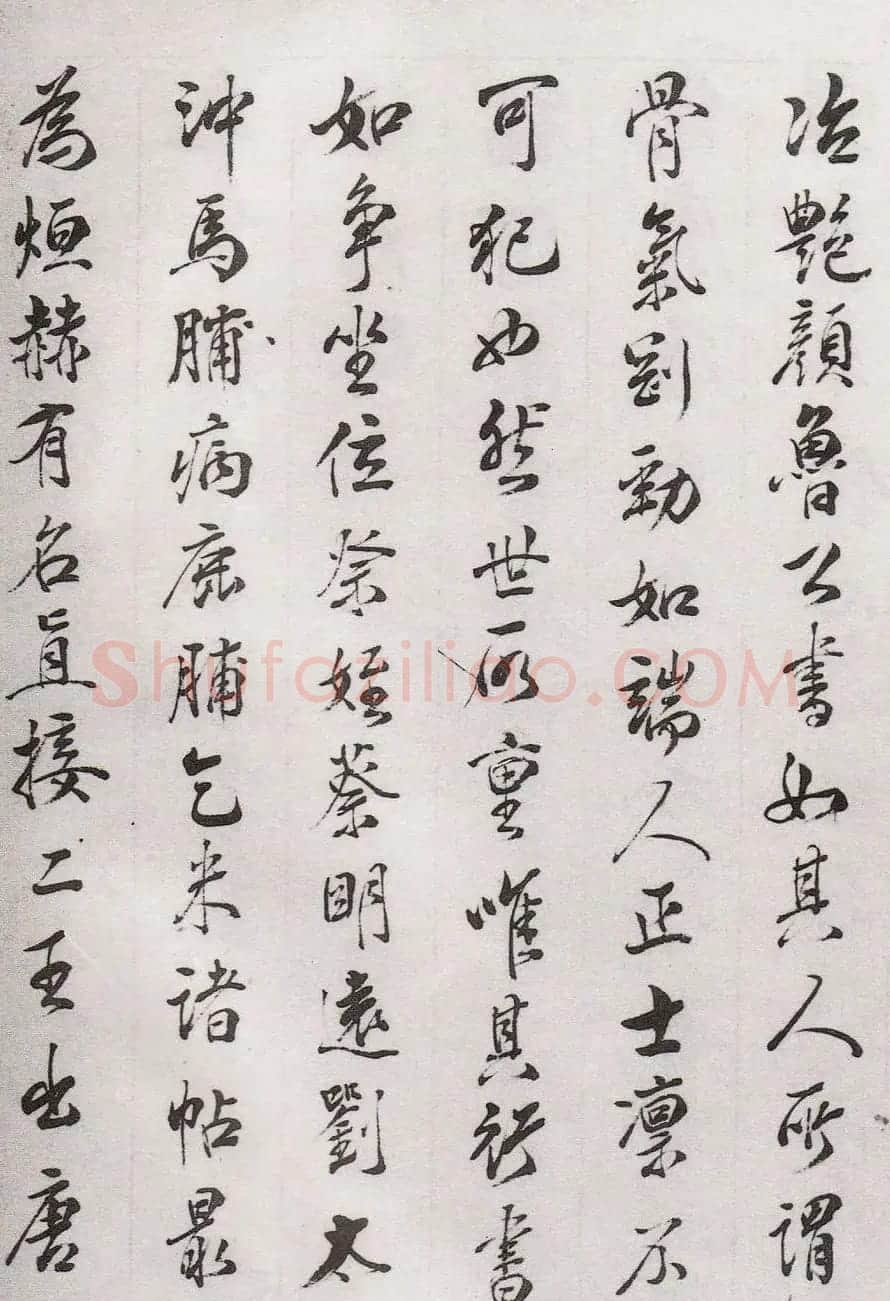 冶艷顏魯公書如其人所謂
骨氣剛勁如端人正士凛不
可犯也然世所重唯其行書
如爭坐位祭姪蔡明遠劉太
沖馬脯病鹿脯乞米諸帖最
為烜赫有名直接二王出唐
Shufaziliao.COM